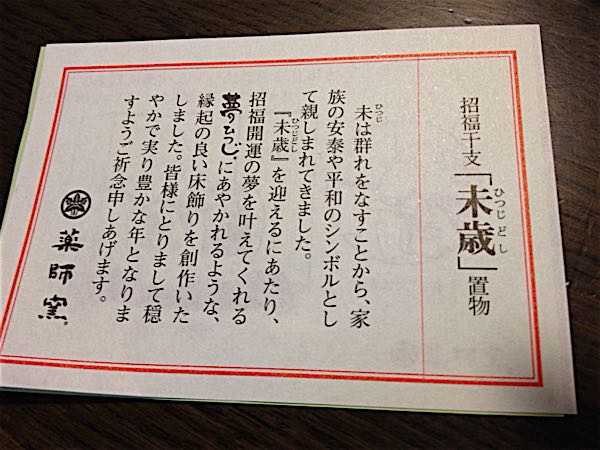 招福干支「未歳」置物
ひつじどし
未は群れをなすことから、家
ひつじ
族の安泰や平和のシンボルとし
て親しまれてきました。
『未歳』を迎えるにあたり、
ひつじどし
招福開運の夢を叶えてくれる
夢ひつじにあやかれるような、
縁起の良い床飾りを創作いた
しました。皆様にとりまして穏
やかで実り豊かな年となりま
すようご祈念申しあげます。
薬師窯